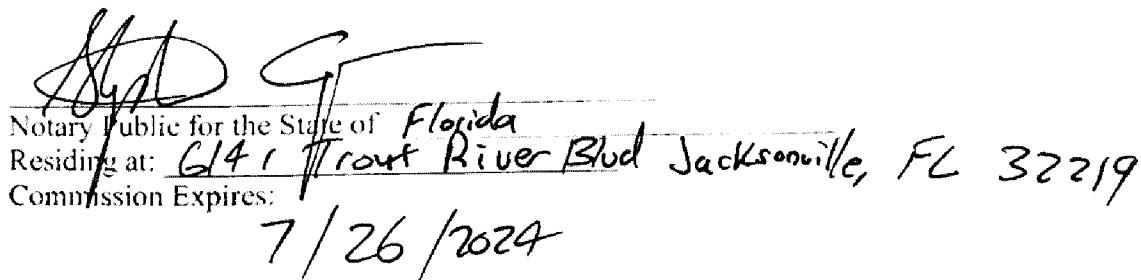 Notary Public for the State of Florida
Residing at: 6141 Trout River Blvd Jacksonville, FL 32219
Commission Expires:
7/26/2024